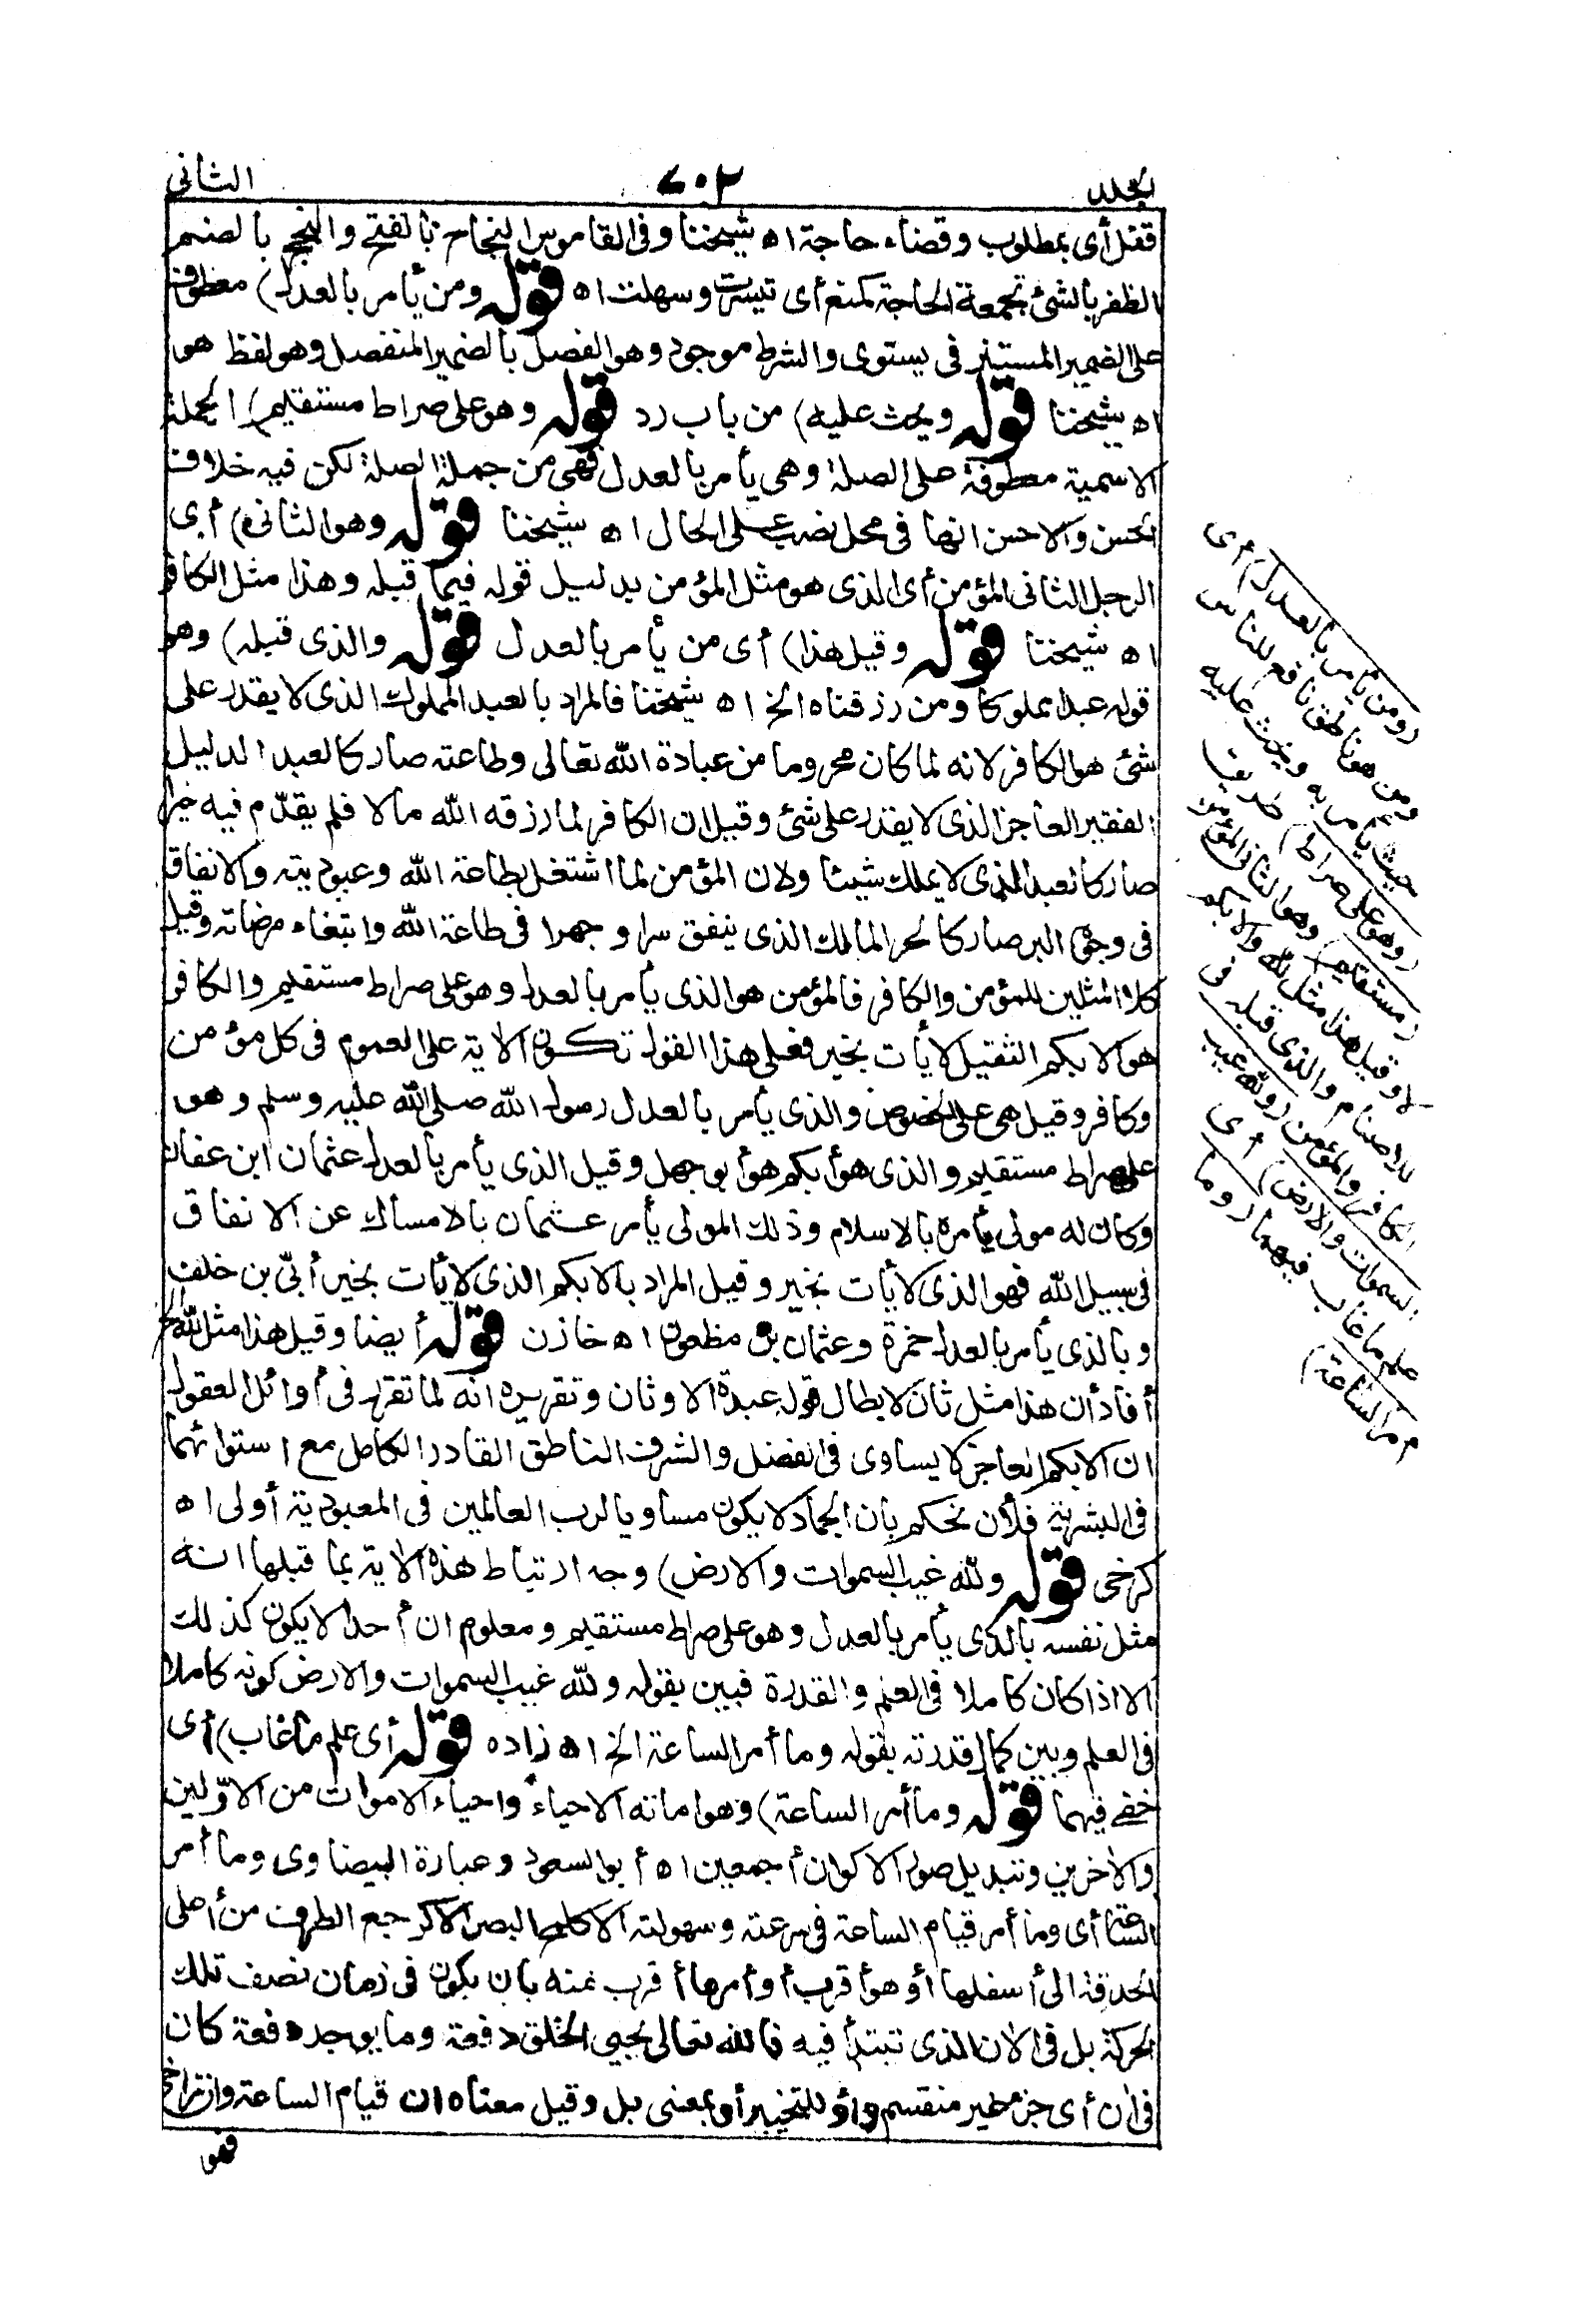 المجلد
٧٠٢
الثانى
ففل أى بمطلوب وقضاء حاجة اه شيخنا وفى القاموس النجاح بالفتح والنجح بالضم
الظفر بالشئ نجحت الحاجة كمنع أى تيسرت وسهلت اه قوله ومن يأمر بالعدل) معطوف
على الضمير المستتر فى يستوى والشرط موجود وهو الفصل بالضمير المنفصل وهو لفظ هو
اه شيخنا قوله ويحث عليه) من باب رد قوله وهو على صراط مستقيم) الجملة
الاسمية معطوفة على الصلة وهى يأمر بالعدل فهى من جملة الصلة لكن فيه خلاف
الحسن والاحسن انها فى محل نصب على الحال اه شيخنا قوله وهو الثانى) أى
الرجل الثانى المؤمن أى الذى هو مثل المؤمن بدليل قوله فيما قبله وهذا مثل الكافر
اه شيخنا قوله وقيل هذا) أى من يأمر بالعدل قوله والذى قبله) وهو
قوله عبدا مملوكا ومن رزقناه الخ اه شيخنا فالمراد بالعبد المملوك الذى لا يقدر على
شئ هو الكافر لانه لما كان محروما من عبادة الله تعالى وطاعته صار كالعبد الدليل
الفقير العاجز الذى لا يقدر على شئ وقيل ان الكافر لما رزقه الله مالا فلم يقدّم فيه خيرا
صار كالعبد الذى لا يملك شيئا ولان المؤمن لما اشتغل بطاعة الله وعبوديته والانفاق
فى وجوه البر صار كالحر المالك الذى ينفق سرا وجهرا فى طاعة الله وابتغاء مرضاته وقيل
كلا المثلين للمؤمن والكافر فالمؤمن هو الذى يأمر بالعدل وهو على صراط مستقيم والكافر
هو الابكم الثقيل لا يأت بخير فعلى هذا القول تكون الاية على العموم فى كل مؤمن
وكافر وقيل هى على الخصوص والذى يأمر بالعدل رسول الله صلى الله عليه وسلم وهو
على صراط مستقيم والذى هو أبكم هو أبو جهل وقيل الذى يأمر بالعدل عثمان ابن عفان
وكان له مولى يأمره بالاسلام وذلك المولى يأمر عثمان بالامساك عن الانفاق
فى سبيل الله فهو الذى لا يأت بخير وقيل المراد بالابكم الذى لا يأت بخير أبىّ بن خلف
وبالذى يأمر بالعدل حمزة وعثمان بن مظعون اه خازن قوله أيضا وقيل هذا مثل لله الخ
أفاد أن هذا مثل ثان لابطال قول عبدة الاوثان وتقريره انه لما تقرر فى أوائل العقول
ان الابكم العاجز لا يساوى فى الفضل والشرف الناطق القادر الكامل مع استوائهما
فى البشرية فلأن نحكم بأن الجماد لا يكون مساويا لرب العالمين فى المعبودية أولى اه
كرخى قوله ولله غيب السموات والارض) وجه ارتباط هذه الاية بما قبلها انه
مثل نفسه بالذى يأمر بالعدل وهو على صراط مستقيم ومعلوم ان أحدا لا يكون كذلك
الا اذا كان كاملا فى العلم والقدرة فبين بقوله ولله غيب السموات والارض كونه كاملا
فى العلم وبين كمال قدرته بقوله وما أمر الساعة الخ اه زاده قوله أى علم ما غاب) أى
خفى فيهما قوله وما أمر الساعة) وهو اماتة الاحياء واحياء الاموات من الاوّلين
والاخرين وتبديل صور الاكوان أجمعين اه أبو السعود وعبارة البيضاوى وما أمر
الساعة أى وما أمر قيام الساعة فى سرعته وسهولته الا كلمح البصر الا كرجع الطرف من أعلى
الحدقة الى أسفلها أو هو أقرب أو أمرها أقرب منه بأن يكون فى زمان نصف تلك
الحركة بل فى الان الذى تبتدأ فيه فالله تعالى يحيى الخلق دفعة وما يوجد دفعة كان
فى ان أى جزء غير منقسم وأو للتخيير أو بمعنى بل وقيل معناه ان قيام الساعة وان تراخى
فهو
(ومن يأمر بالعدل) أى
ومن هو ناطق نافع للناس
حيث يأمر به ويحث عليه
(وهو على صراط) طريق
(مستقيم) وهو الثانى المؤمن
لا وقيل هذا مثل لله والابكم
للاصنام والذى قبله فى
الكافر والمؤمن (ولله غيب
السموات والارض) أى
علم ما غاب فيهما (وما
أمر الساعة)